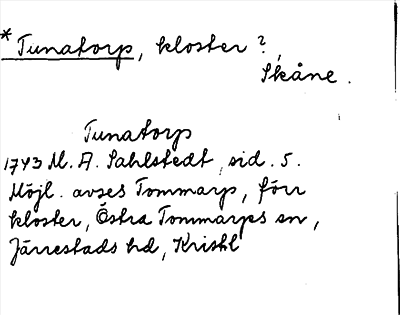 * Tunatorp, kloster ?,
Skåne.
Tunatorp
1743 M. A. Sahlstedt, sid. 5.
Möjl. avses Tommarp, förr
kloster, Östra Tommarps sn,
Järrestads hd, Kristl